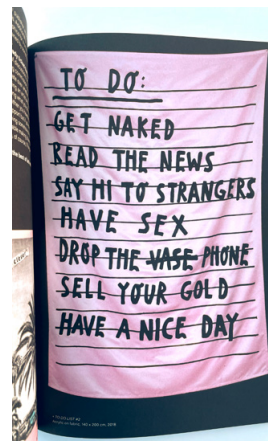 TO DO:
GET NAKED
READ THE NEWS
SAY HI TO STRANGERS
HAVE SEX
DROP THE VASE PHONE
SELL YOUR GOLD
HAVE A NICE DAY